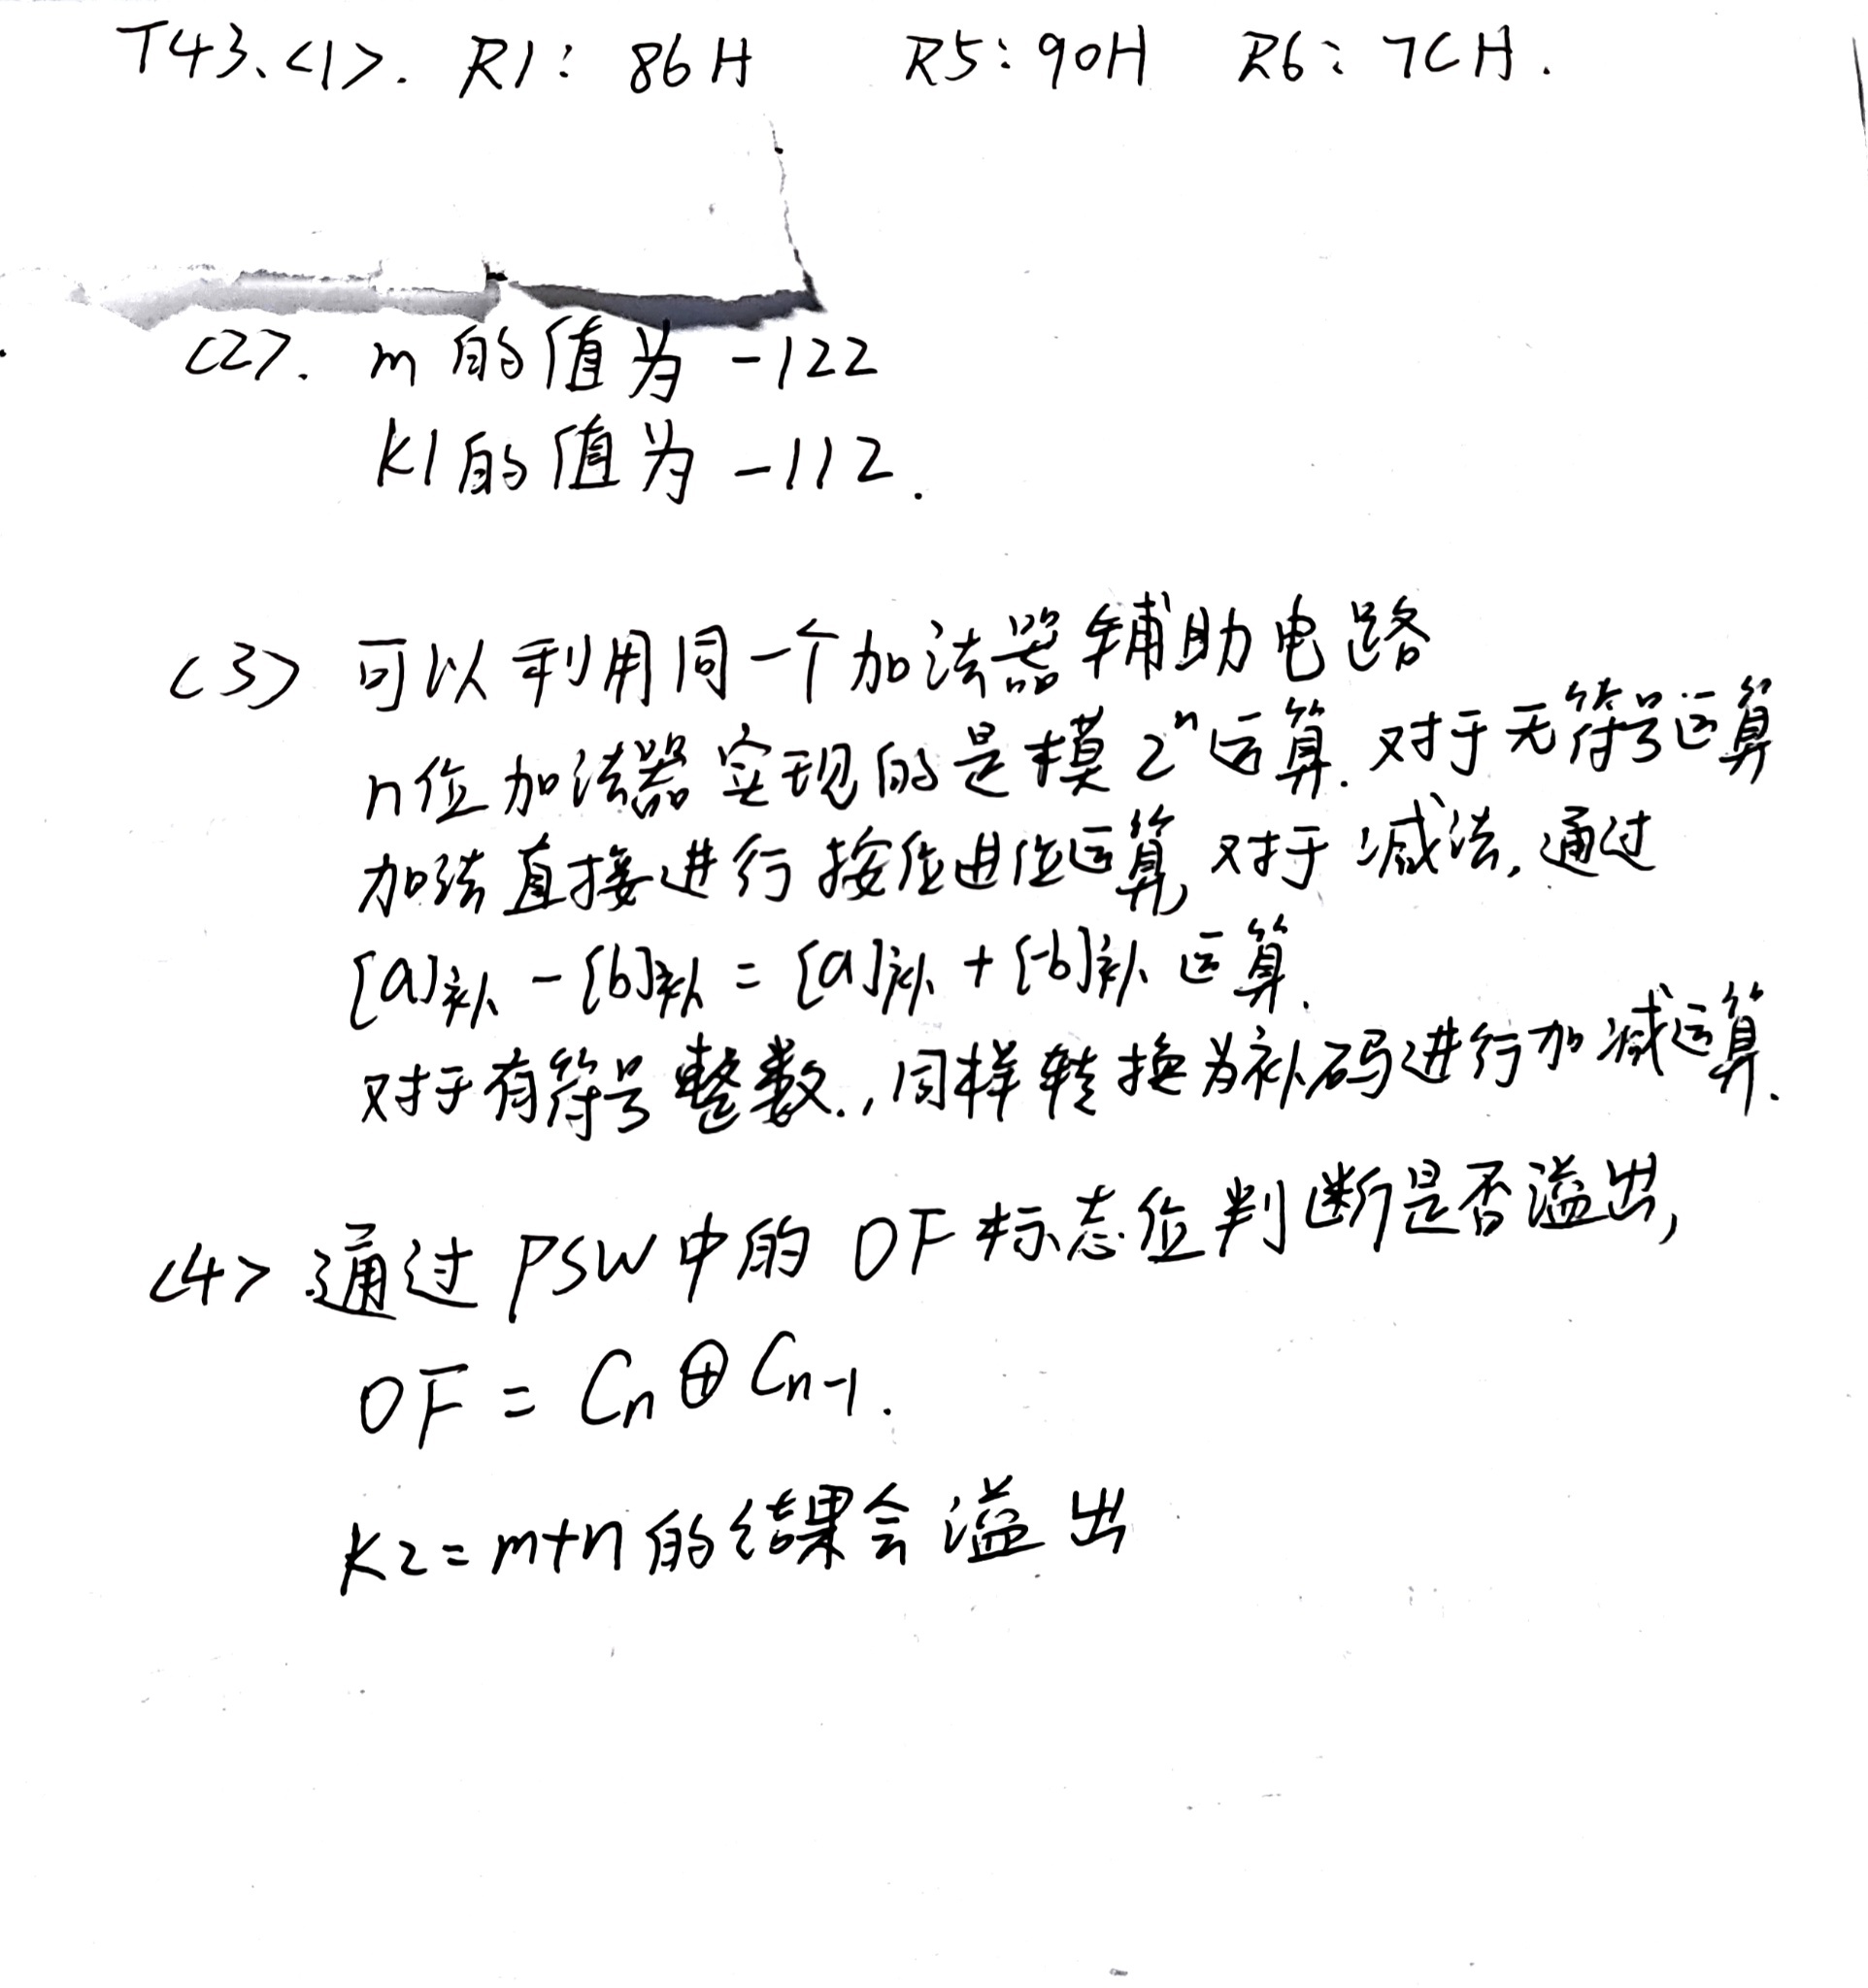 T43、<1>. R1: 86H R5: 90H R6: 7CH.
<2>. m的值为 -122
k1的值为 -112.
(3) 可以利用同一个加法器辅助电路
n位加法器实现的是模2ⁿ运算. 对于无符号运算
加法直接进行按位进位运算, 对于减法, 通过
[a]补 - [b]补 = [a]补 + [-b]补 运算.
对于有符号整数., 同样转换为补码进行加减运算.
<4> 通过PSW中的OF标志位判断是否溢出,
OF = Cn⊕Cn-1.
K2=m+n的结果会溢出